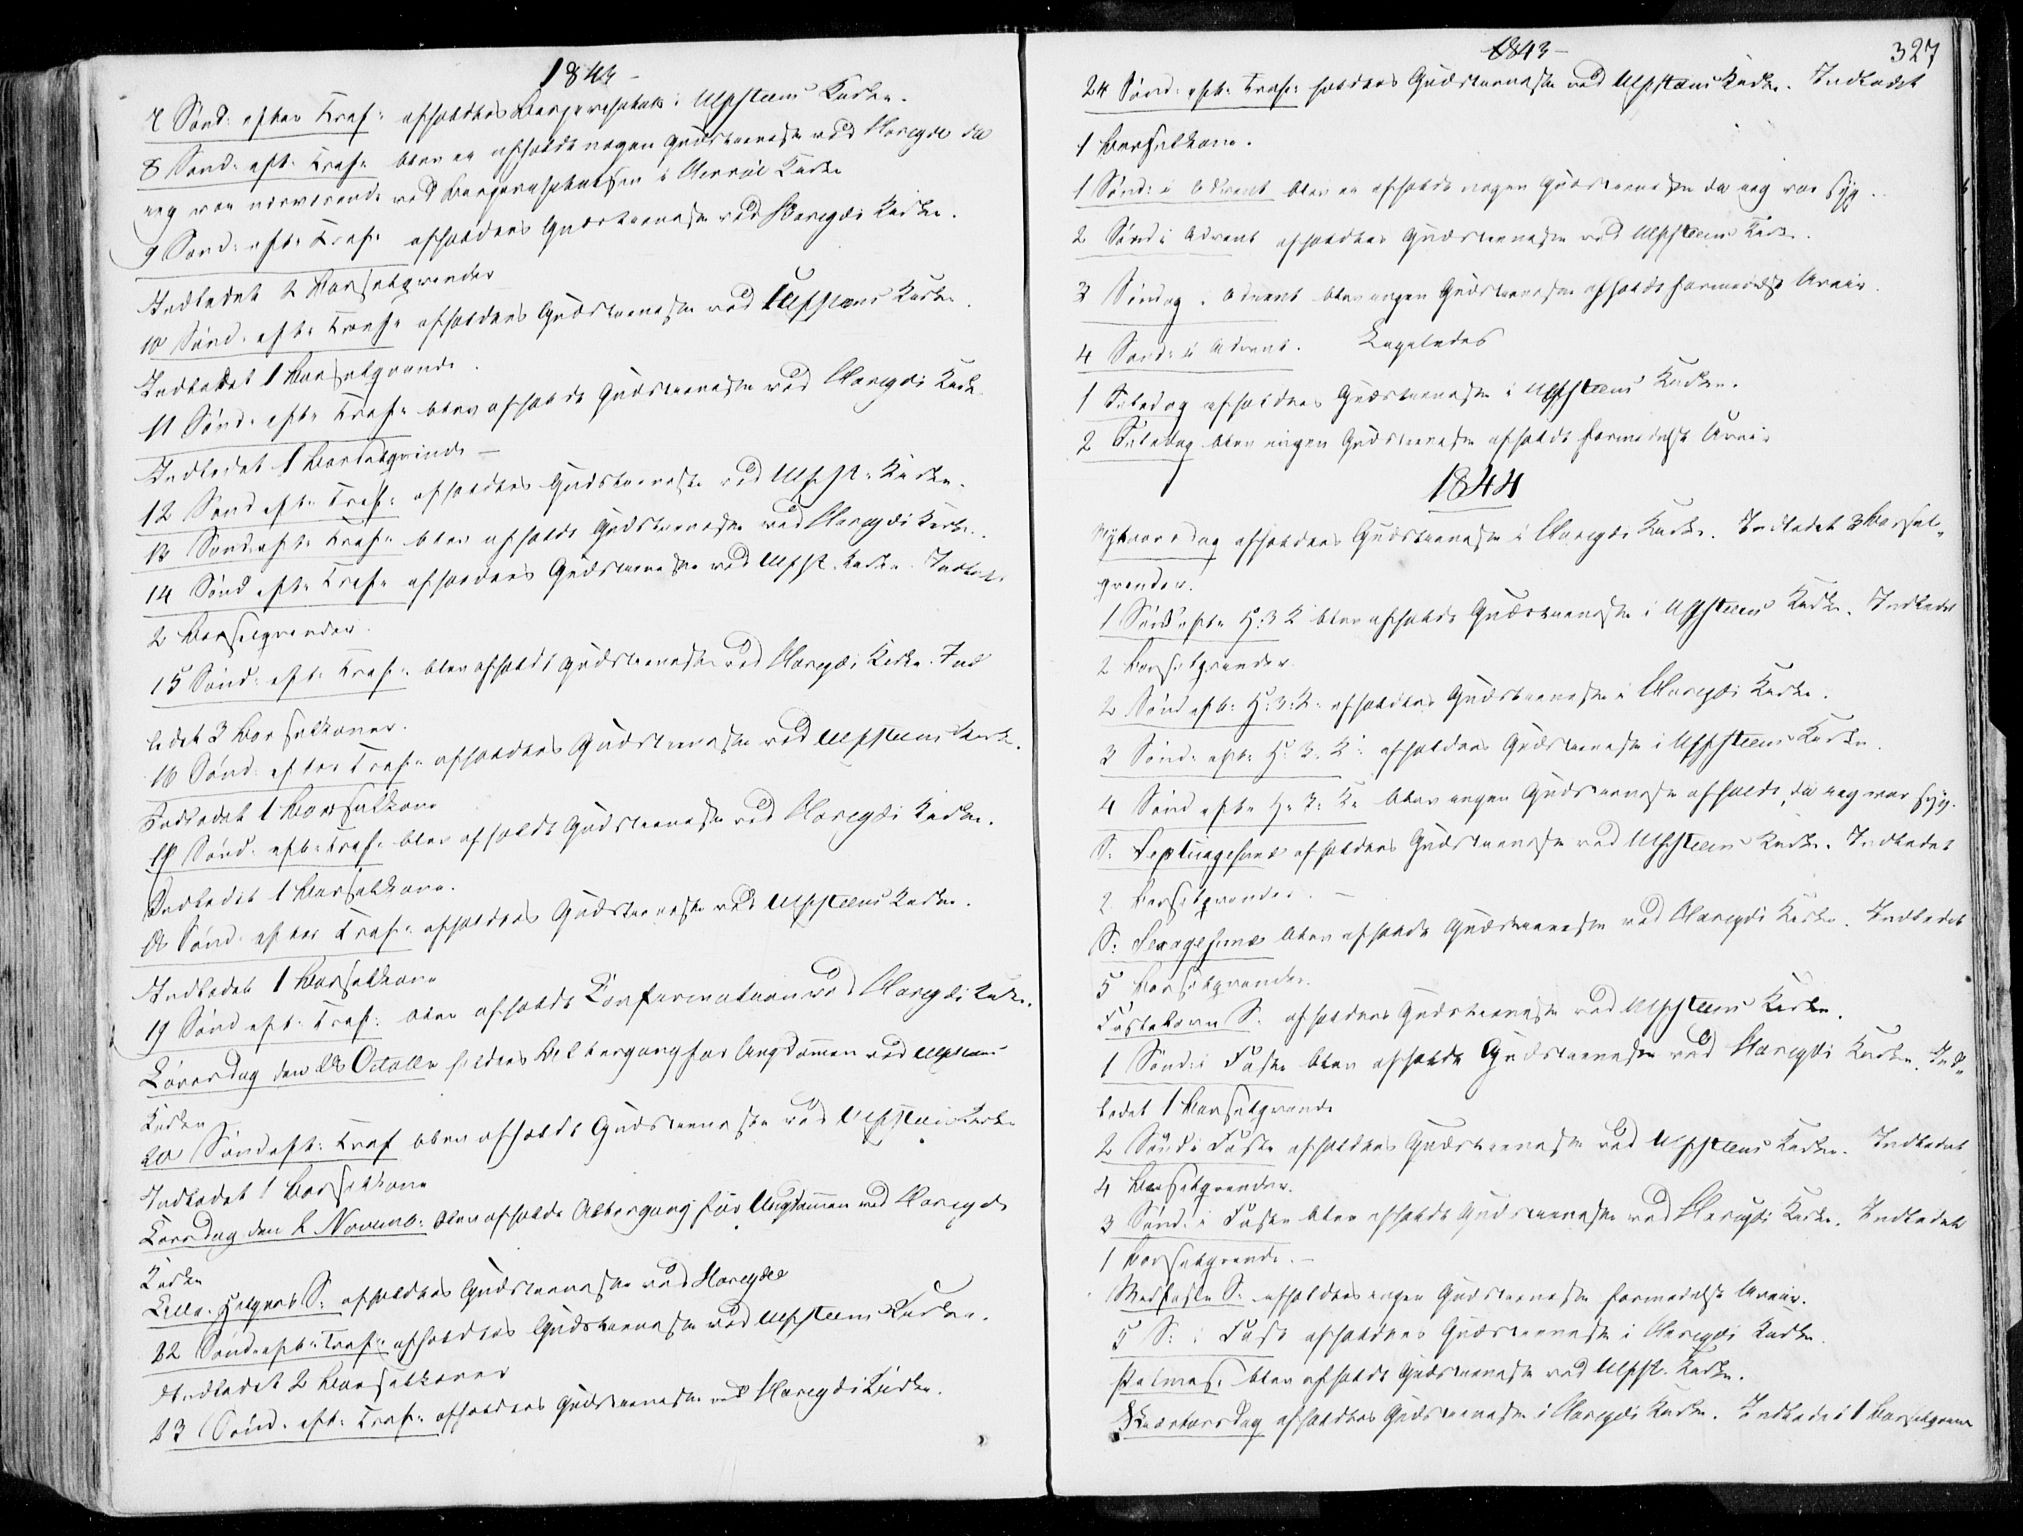 1843 -
7 Sønd: efter Tref: afholdtes i Ulfsteens Kirke.
8 Sønd: eft: Tref: blev ei afholdt nogen Gudstieneste ved Hareide da
jeg var nærværende ved i Kirke
9 Sønd: eft: Tref: afholdtes Gudstieneste ved Hareids Kirke.
Indledet 2 Barselqvinder
10 Sønd. eft: Tref: afholdtes Gudstieneste ved Ulfsteens Kirke.
Indledet 1 Barselqvinde.
11 Sønd. eft: Tref: blev afholdt Gudstieneste ved Hareids Kirke.
Indledet 1 Barselqvinde -
12 Sønd eft: Tref: afholdtes Gudstieneste ved Ulfst: Kirke.
13 Sønd eft: Tref: blev afholdt Gudstieneste ved Hareids Kirke.
14 Sønd eft: Tref: afholdtes Gudstieneste ved Ulfst. Kirke. Indledet
2 Barselqvinder.
15 Sønd: eft: Tref: blev afholdt Gudstieneste ved Hareids Kirke. Ind
ledet 3 Barselkoner.
16 Sønd: efter Tref: afholdtes Gudstieneste ved Ulfsteens Kirke.
Indledet 1 Barselkone
17 Sønd: eft: Tref: blev afholdt Gudstieneste ved Hareids Kirke.
Indledet 1 Barselkone.
18 Sønd: efter Tref: afholdtes Gudstieneste ved Ulfsteens Kirke.
Indledet 1 Barselkone
19 Sønd eft: Tref: blev afholdt Confirmation ved Hareids Kirke.
Løverdag den Octobr holdtes Altergang for Ungdommen ved Ulfsteens
Kirke
20 Sønd eft: Tref blev afholdt Gudstieneste ved Ulfsteens Kirke
Indledet 1 Barselkone
Torsdag den 2 Novemb: blev afholdt Altergang for Ungdommen ved Hareids
Kirke
Alle Helgens S: afholdtes Gudstieneste ved Hareide
22 Sønd. eft: Tref: afholdtes Gudstieneste ved Ulfsteens Kirke.
Indledet 2 Barselkoner
23 Sønd. eft: Tref: afholdtes Gudstieneste ved Hareids Kirke.
1843 -
327
24 Sønd: eft: Tref: holdtes Gudstieneste ved Ulfsteens Kirke. Indledet
1 Barselkone.
1 Sønd: i Advent blev ei afholdt nogen Gudstieneste da jeg var syg.
2 Sønd i Advent afholdtes Gudstieneste ved Ulfsteens Kirke.
3 Søndag i Advent blev ingen Gudstieneste afholdt formedelst Uveir.
4 Sønd: i Advent. Ligeledes
1 Juledag afholdtes Gudstieneste i Ulfsteens Kirke.
2 Juledag blev ingen Gudstieneste afholdt formedelst Uveir
1844
Nytaarsdag afholdtes Gudstieneste i Hareids Kirke. Indledet 3 Barsel-
qvinder.
1 Sønd: eft: H: 3 K blev afholdt Gudstieneste i Ulfsteens Kirke. Indledet
2 Barselqvinder.
2 Sønd eft: H: 3: K: afholdtes Gudstieneste i Hareids Kirke.
3 Sønd: eft: H: 3. K: afholdtes Gudstieneste i Ulfsteens Kirke.
4 Sønd eft: H: 3: K: blev ingen Gudstieneste afholdt, da jeg var syg.
S: Septuagesima afholdtes Gudstieneste ved Ulfsteens Kirke. Indledet
2 Barselqvinder. -
S: Sexagesima blev afholdt Gudstieneste ved Hareids Kirke. Indledet
5 Barselqvinder.
Fastelavns S: afholdtes Gudstieneste ved Ulfsteens Kirke.
1 Sønd: i Faste blev afholdt Gudstieneste ved Hareids Kirke. Ind-
ledet 1 Barselqvinde
2 Sønd i Faste afholdtes Gudstieneste ved Ulfsteens Kirke. Indledet
4 Barselqvinder.
3 Sønd: i Faste blev afholdt Gudstieneste ved Hareids Kirke. Indledet
1 Barselqvinde. -
Midfaste S: afholdtes ingen Gudstieneste formedelst Uveir.
5 S: i Faste afholdtes Gudstieneste i Hareids Kirke.
Palmes: blev afholdt Gudstieneste ved Ulfst. Kirke.
Skjærtorsdag afholdtes Gudstieneste i Hareids Kirke. Indledet 1 Barselqvinde